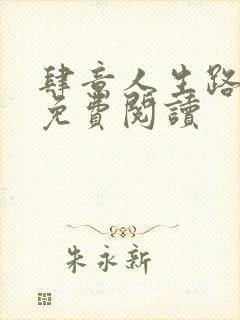 肆意人生路
免費閱讀
朱永新